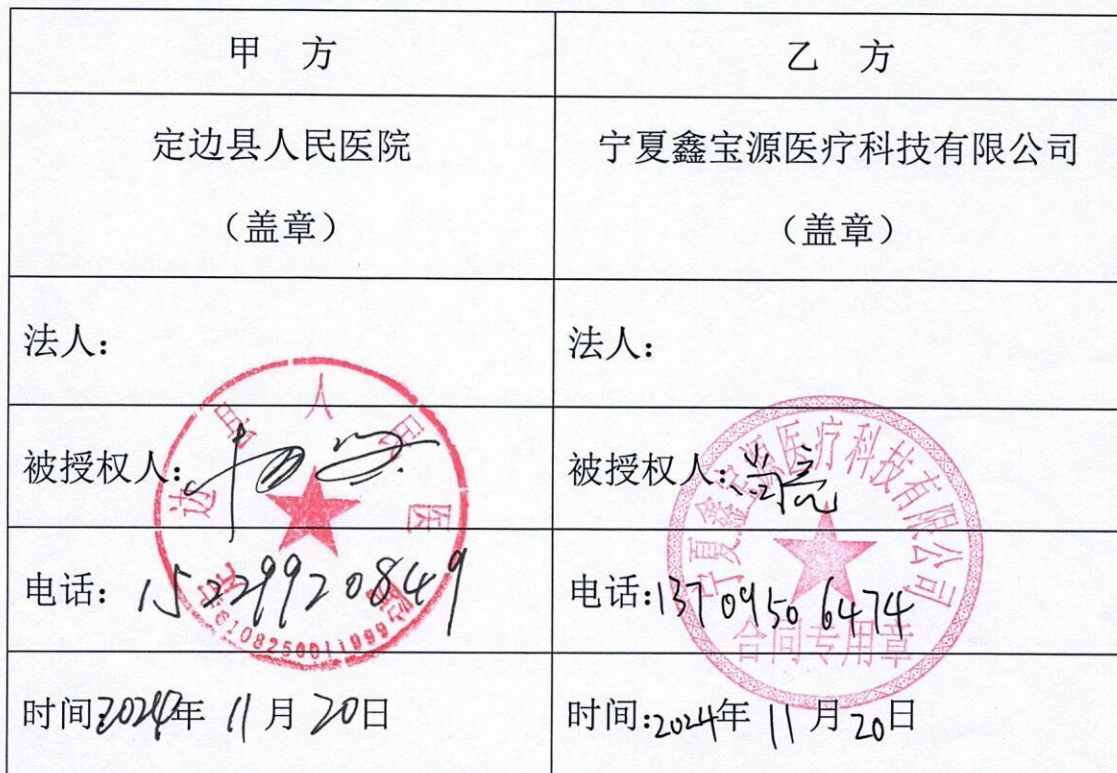 甲 方
乙 方
定边县人民医院
(盖章)
宁夏鑫宝源医疗科技有限公司
(盖章)
法人:
法人:
被授权人:
被授权人:
电话: 15229920849
电话:13709506474
时间:2024年 11月 20日
时间:2024年 11月 20日
定边县人民医院
6108250011999
宁夏鑫宝源医疗科技有限公司
合同专用章